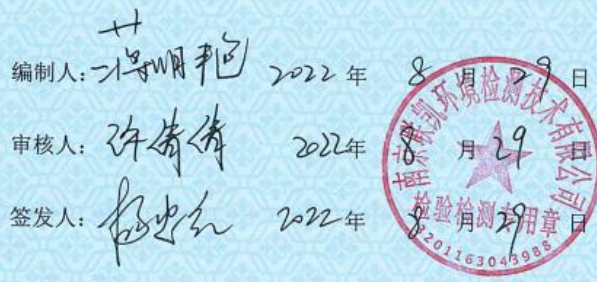 编制人：蒋明艳 2022年 8月29日
审核人：许倩倩 2022年 8月29日
签发人： 2022年 8月29日
环境检测技术有限公司
检验检测专用章
3201163043988